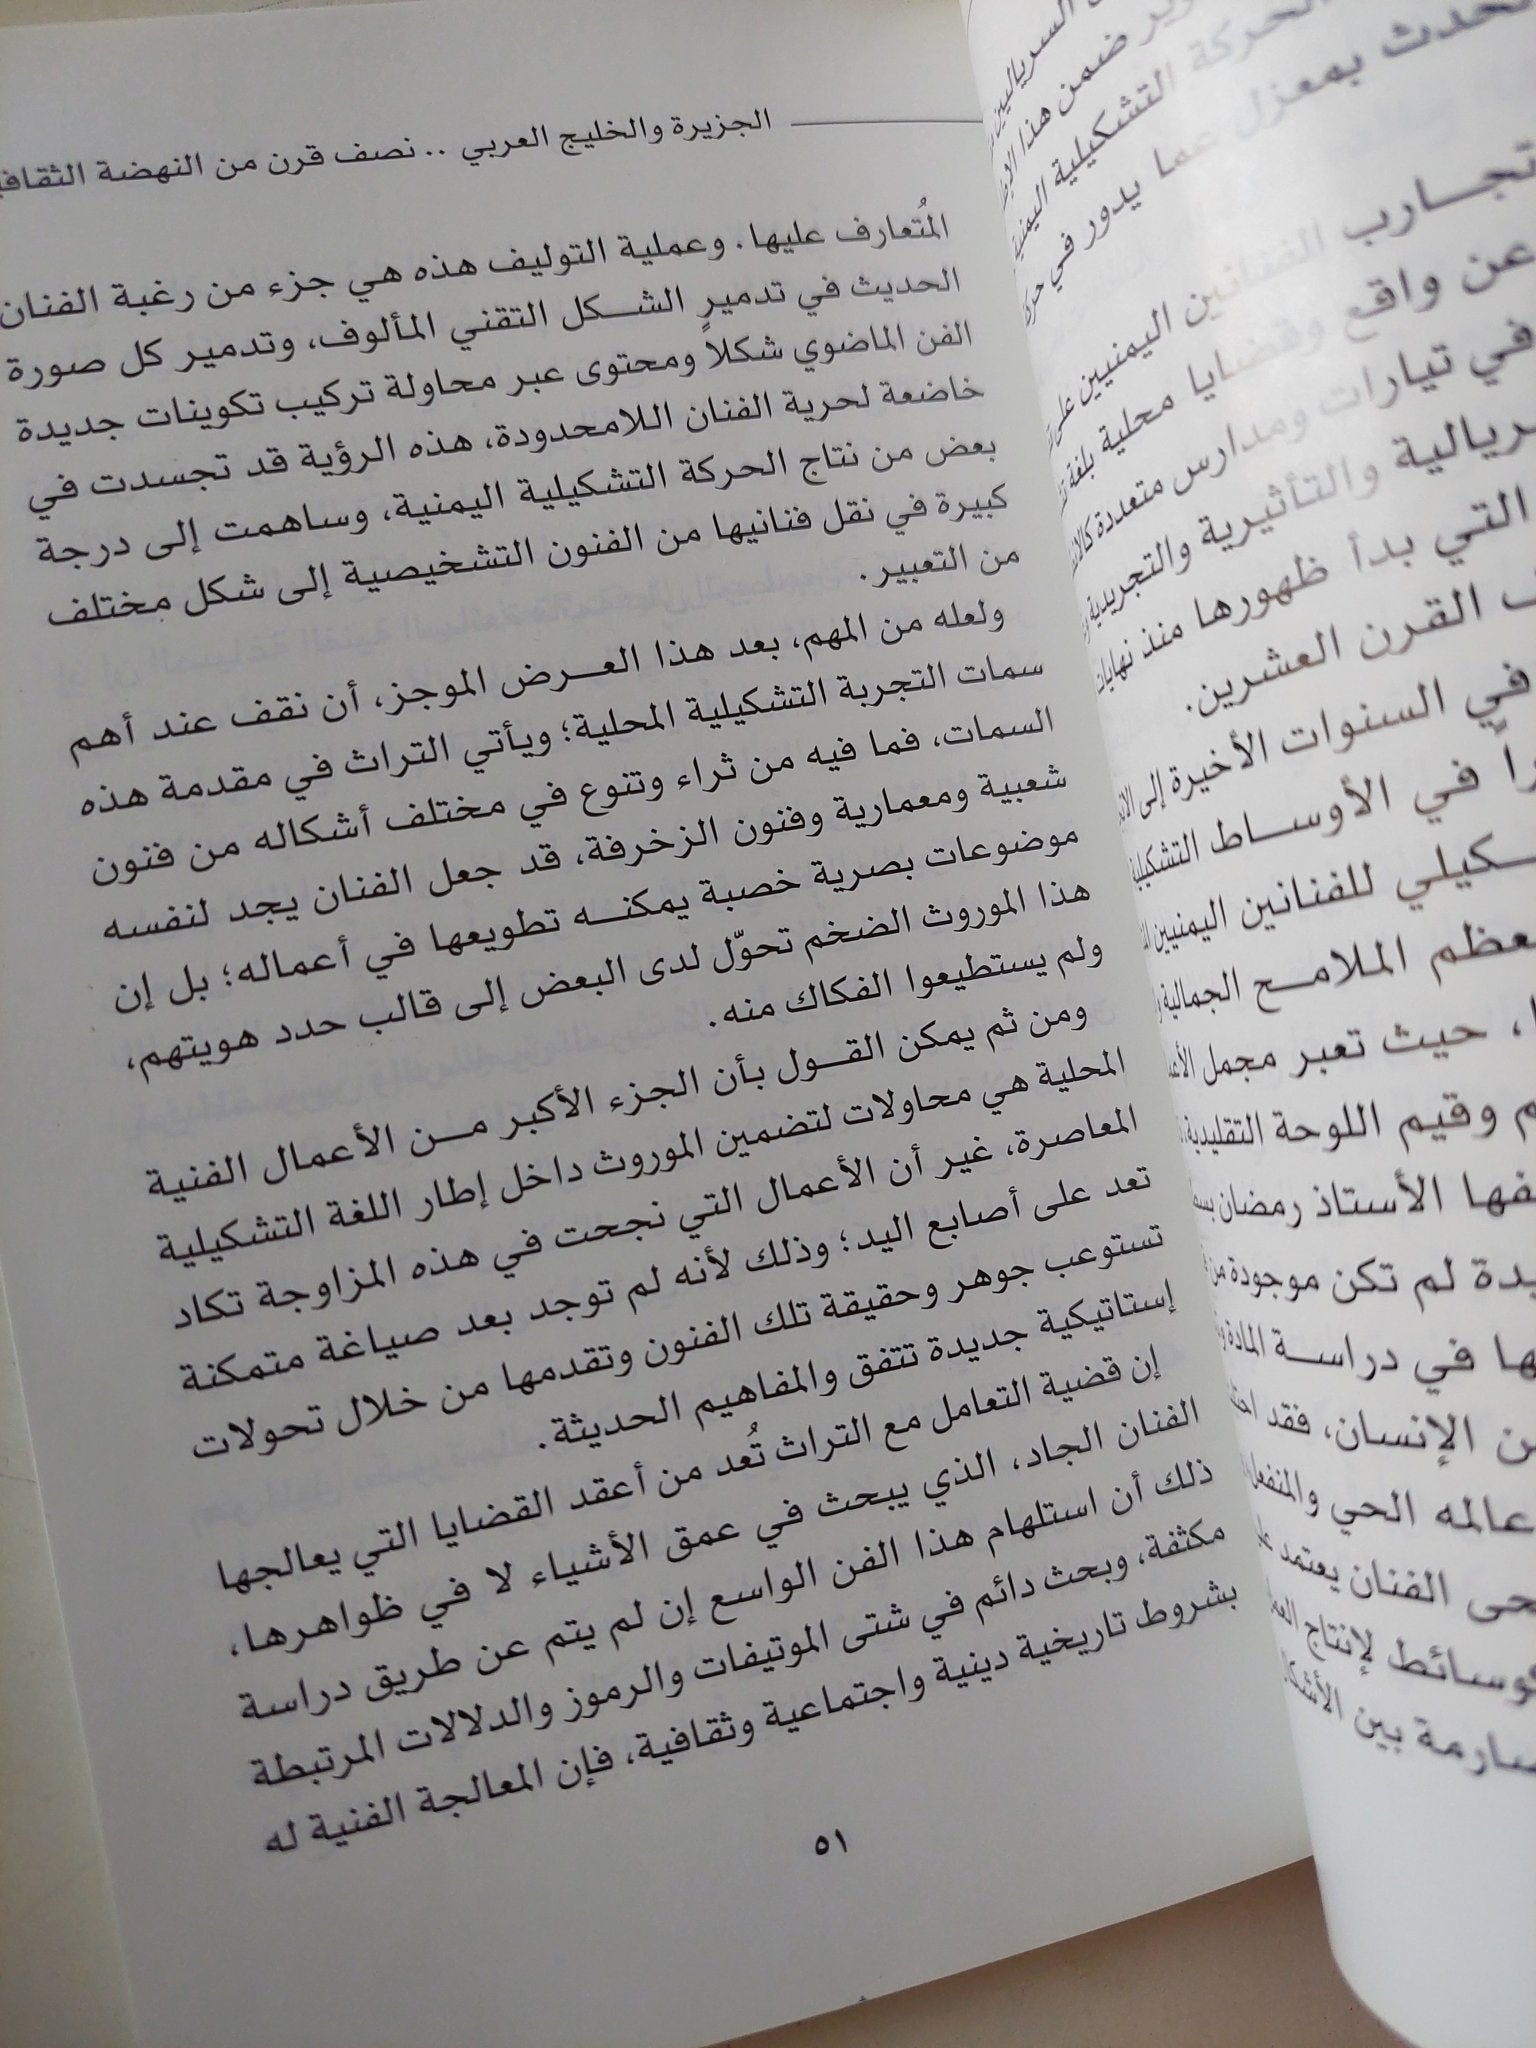 تحدث بمعزل عما يدور في
تجارب الفنانين اليمنيين
عن واقع وقضايا محلية بلغة
في تيارات ومدارس متعددة
والتأثيرية والتجريدية
التي بدأ ظهورها منذ نهايات
القرن العشرين.
في السنوات الأخيرة إلى
في الأوساط التشكيلية
للفنانين اليمنيين
الملامح الجمالية
، حيث تعبر مجمل
وقيم اللوحة التقليدية،
الأستاذ رمضان
لم تكن موجودة من
في دراسة المادة
الإنسان، فقد
عالمه الحي والمنفعل
الفنان يعتمد
لإنتاج
بين الأشكال
الجزيرة والخليج العربي .. نصف قرن من النهضة
المُتعارف عليها. وعملية التوليف هذه هي جزء من رغبة الفنان
الحديث في تدمير الشكل التقني المألوف، وتدمير كل صورة
الفن الماضوي شكلاً ومحتوى عبر محاولة تركيب تكوينات جديدة
خاضعة لحرية الفنان اللامحدودة، هذه الرؤية قد تجسدت في
بعض من نتاج الحركة التشكيلية اليمنية، وساهمت إلى درجة
كبيرة في نقل فنانيها من الفنون التشخيصية إلى شكل مختلف
من التعبير.
ولعله من المهم، بعد هذا العرض الموجز، أن نقف عند أهم
سمات التجربة التشكيلية المحلية؛ ويأتي التراث في مقدمة هذه
السمات، فما فيه من ثراء وتنوع في مختلف أشكاله من فنون
شعبية ومعمارية وفنون الزخرفة، قد جعل الفنان يجد لنفسه
موضوعات بصرية خصبة يمكنه تطويعها في أعماله؛ بل إن
هذا الموروث الضخم تحوّل لدى البعض إلى قالب حدد هويتهم،
ولم يستطيعوا الفكاك منه.
ومن ثم يمكن القول بأن الجزء الأكبر من الأعمال الفنية
المحلية هي محاولات لتضمين الموروث داخل إطار اللغة التشكيلية
المعاصرة، غير أن الأعمال التي نجحت في هذه المزاوجة تكاد
تعد على أصابع اليد؛ وذلك لأنه لم توجد بعد صياغة متمكنة
تستوعب جوهر وحقيقة تلك الفنون وتقدمها من خلال تحولات
إستاتيكية جديدة تتفق والمفاهيم الحديثة.
إن قضية التعامل مع التراث تُعد من أعقد القضايا التي يعالجها
الفنان الجاد، الذي يبحث في عمق الأشياء لا في ظواهرها،
ذلك أن استلهام هذا الفن الواسع إن لم يتم عن طريق دراسة
مكثفة، وبحث دائم في شتى الموتيفات والرموز والدلالات المرتبطة
بشروط تاريخية دينية واجتماعية وثقافية، فإن المعالجة الفنية له
٥١